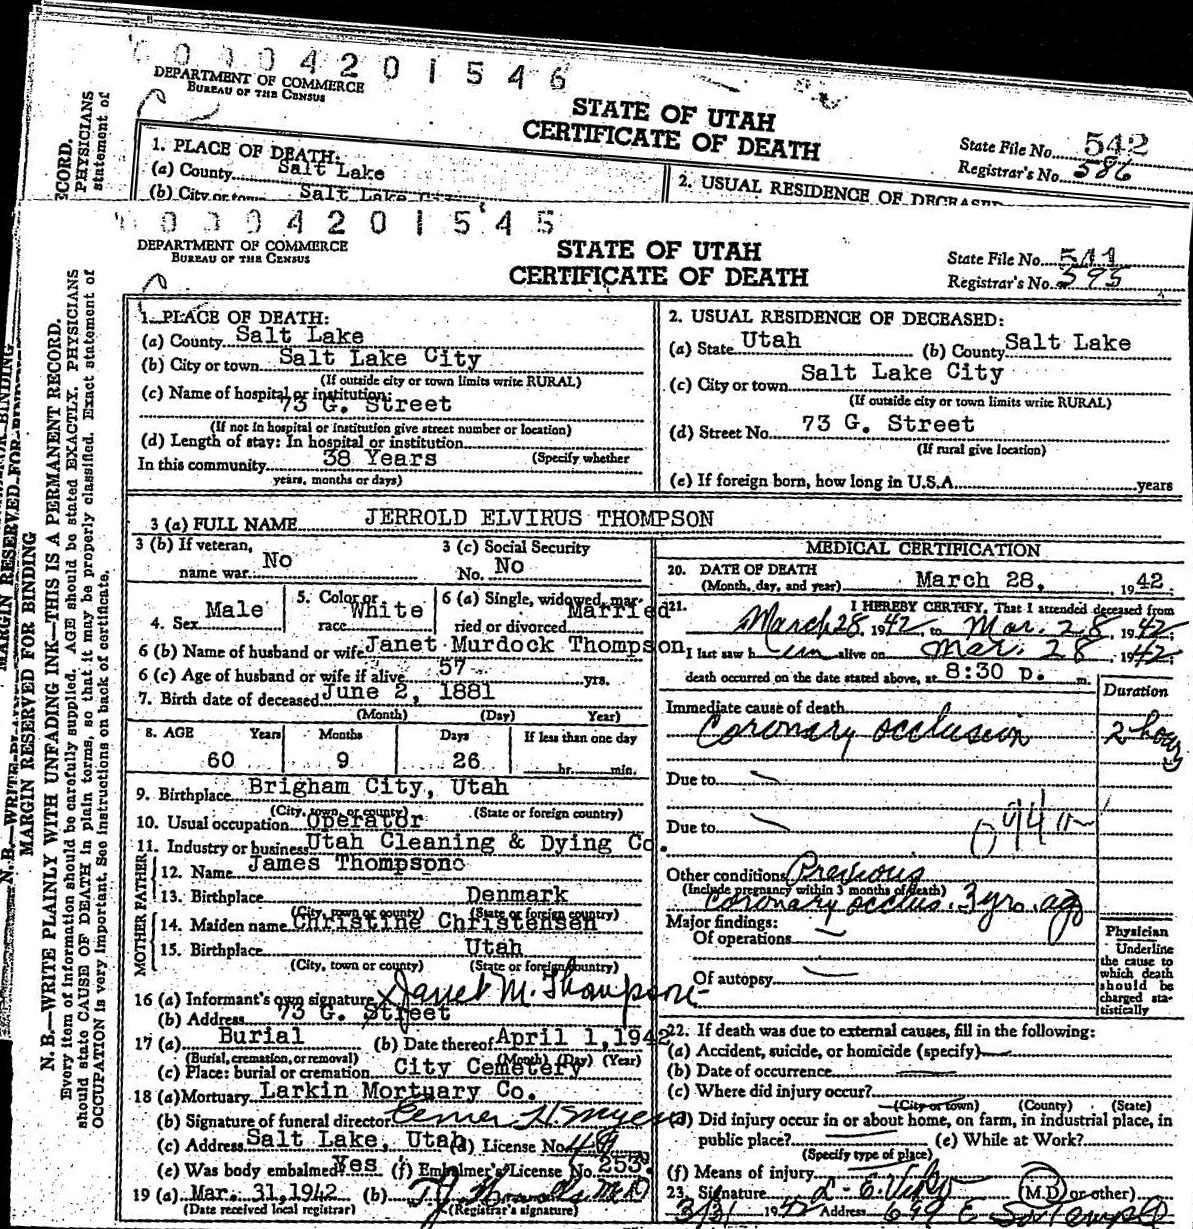 0 0 0 4 2 0 1 5 4 6
DEPARTMENT OF COMMERCE
BUREAU OF THE CENSUS
STATE OF UTAH
CERTIFICATE OF DEATH
State File No. 542
Registrar's No. 586
1. PLACE OF DEATH:
(a) County Salt Lake
(b) City or town Salt Lake City
2. USUAL RESIDENCE OF DECEASED
ECORD.
PHYSICIANS
statement of
0 0 0 4 2 0 1 5 4 5
DEPARTMENT OF COMMERCE
BUREAU OF THE CENSUS
STATE OF UTAH
CERTIFICATE OF DEATH
State File No. 541
Registrar's No. 595
MARGIN RESERVED FOR BINDING
N. B.—WRITE PLAINLY WITH UNFADING INK—THIS IS A PERMANENT RECORD.
Every item of information should be carefully supplied. AGE should be stated EXACTLY. PHYSICIANS
should state CAUSE OF DEATH in plain terms, so that it may be properly classified. Exact statement of
OCCUPATION is very important. See instructions on back of certificate.
1. PLACE OF DEATH:
(a) County Salt Lake
(b) City or town Salt Lake City
(If outside city or town limits write RURAL)
(c) Name of hospital or institution:
73 G. Street
(If not in hospital or institution give street number or location)
(d) Length of stay: In hospital or institution
In this community 38 Years (Specify whether
years, months or days)
2. USUAL RESIDENCE OF DECEASED:
(a) State Utah (b) County Salt Lake
(c) City or town Salt Lake City
(If outside city or town limits write RURAL)
(d) Street No. 73 G. Street
(If rural give location)
(e) If foreign born, how long in U.S.A. years
3 (a) FULL NAME JERROLD ELVIRUS THOMPSON
3 (b) If veteran,
name war No
3 (c) Social Security
No. No
4. Sex Male
5. Color or
race White
6 (a) Single, widowed, mar-
ried or divorced Married
6 (b) Name of husband or wife Janet Murdock Thompson
6 (c) Age of husband or wife if alive 57 yrs.
7. Birth date of deceased June 2, 1881
(Month) (Day) Year)
8. AGE Years Months Days If less than one day
60 9 26 hr. min.
9. Birthplace Brigham City, Utah
(City, town or county) (State or foreign country)
10. Usual occupation Operator
11. Industry or business Utah Cleaning & Dying Co.
FATHER
12. Name James Thompsonc
13. Birthplace Denmark
(City, town or county) (State or foreign country)
MOTHER
14. Maiden name Christine Christensen
15. Birthplace Utah
(City, town or county) (State or foreign country)
16 (a) Informant's own signature Janet M. Thompson
(b) Address 73 G. Street
17 (a) Burial (b) Date thereof April 1, 1942
(Burial, cremation, or removal) (Month) (Day) (Year)
(c) Place: burial or cremation City Cemetery
18 (a) Mortuary Larkin Mortuary Co.
(b) Signature of funeral director
(c) Address Salt Lake, Utah (d) License No.
(e) Was body embalmed Yes (f) Embalmer's License No. 253
19 (a) Mar. 31, 1942 (b)
(Date received local registrar) (Registrar's signature)
MEDICAL CERTIFICATION
20. DATE OF DEATH
(Month, day, and year) March 28, 1942.
21. I HEREBY CERTIFY, That I attended deceased from
March 28, 1942, to Mar. 28, 1942;
I last saw h im alive on Mar. 28, 1942;
death occurred on the date stated above, at 8:30 p. m.
Duration
Immediate cause of death
Coronary occlusion 2 hours
Due to
Due to
094
Other conditions Previous
(Include pregnancy within 3 months of death)
coronary occlus. 3 yrs. ago
Major findings:
Of operations
Of autopsy
Physician
Underline
the cause to
which death
should be
charged sta-
tistically
22. If death was due to external causes, fill in the following:
(a) Accident, suicide, or homicide (specify)
(b) Date of occurrence
(c) Where did injury occur?
(City or town) (County) (State)
(d) Did injury occur in or about home, on farm, in industrial place, in
public place? (e) While at Work?
(Specify type of place)
(f) Means of injury
23. Signature (M.D. or other)
3/31 1942 Address 699 E. So. Temple